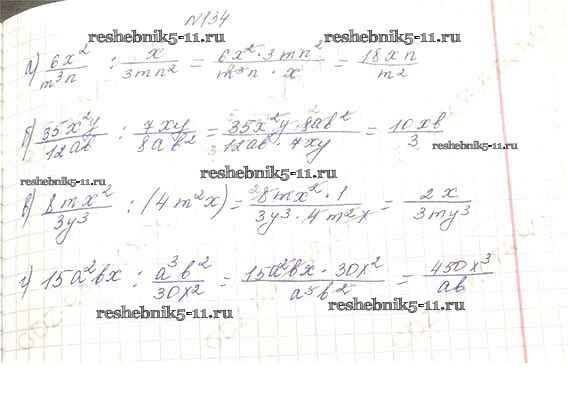 №134
reshebnik5-11.ru
а) 6x²/m³n : x/3mn² = 6x²·3mn²/m³n·x = 18xn/m²
reshebnik5-11.ru
б) 35x²y/12ab : 7xy/8ab² = 35x²y·8ab²/12ab·7xy = 10xb/3
reshebnik5-11.ru
reshebnik5-11.ru
reshebnik5-11.ru
в) 8mx²/3y³ : (4m²x) = 8mx²·1/3y³·4m²x = 2x/3my³
reshebnik5-11.ru
г) 15a²bx : a³b²/30x² = 15a²bx·30x²/a³b² = 450x³/ab
reshebnik5-11.ru
reshebnik5-11.ru